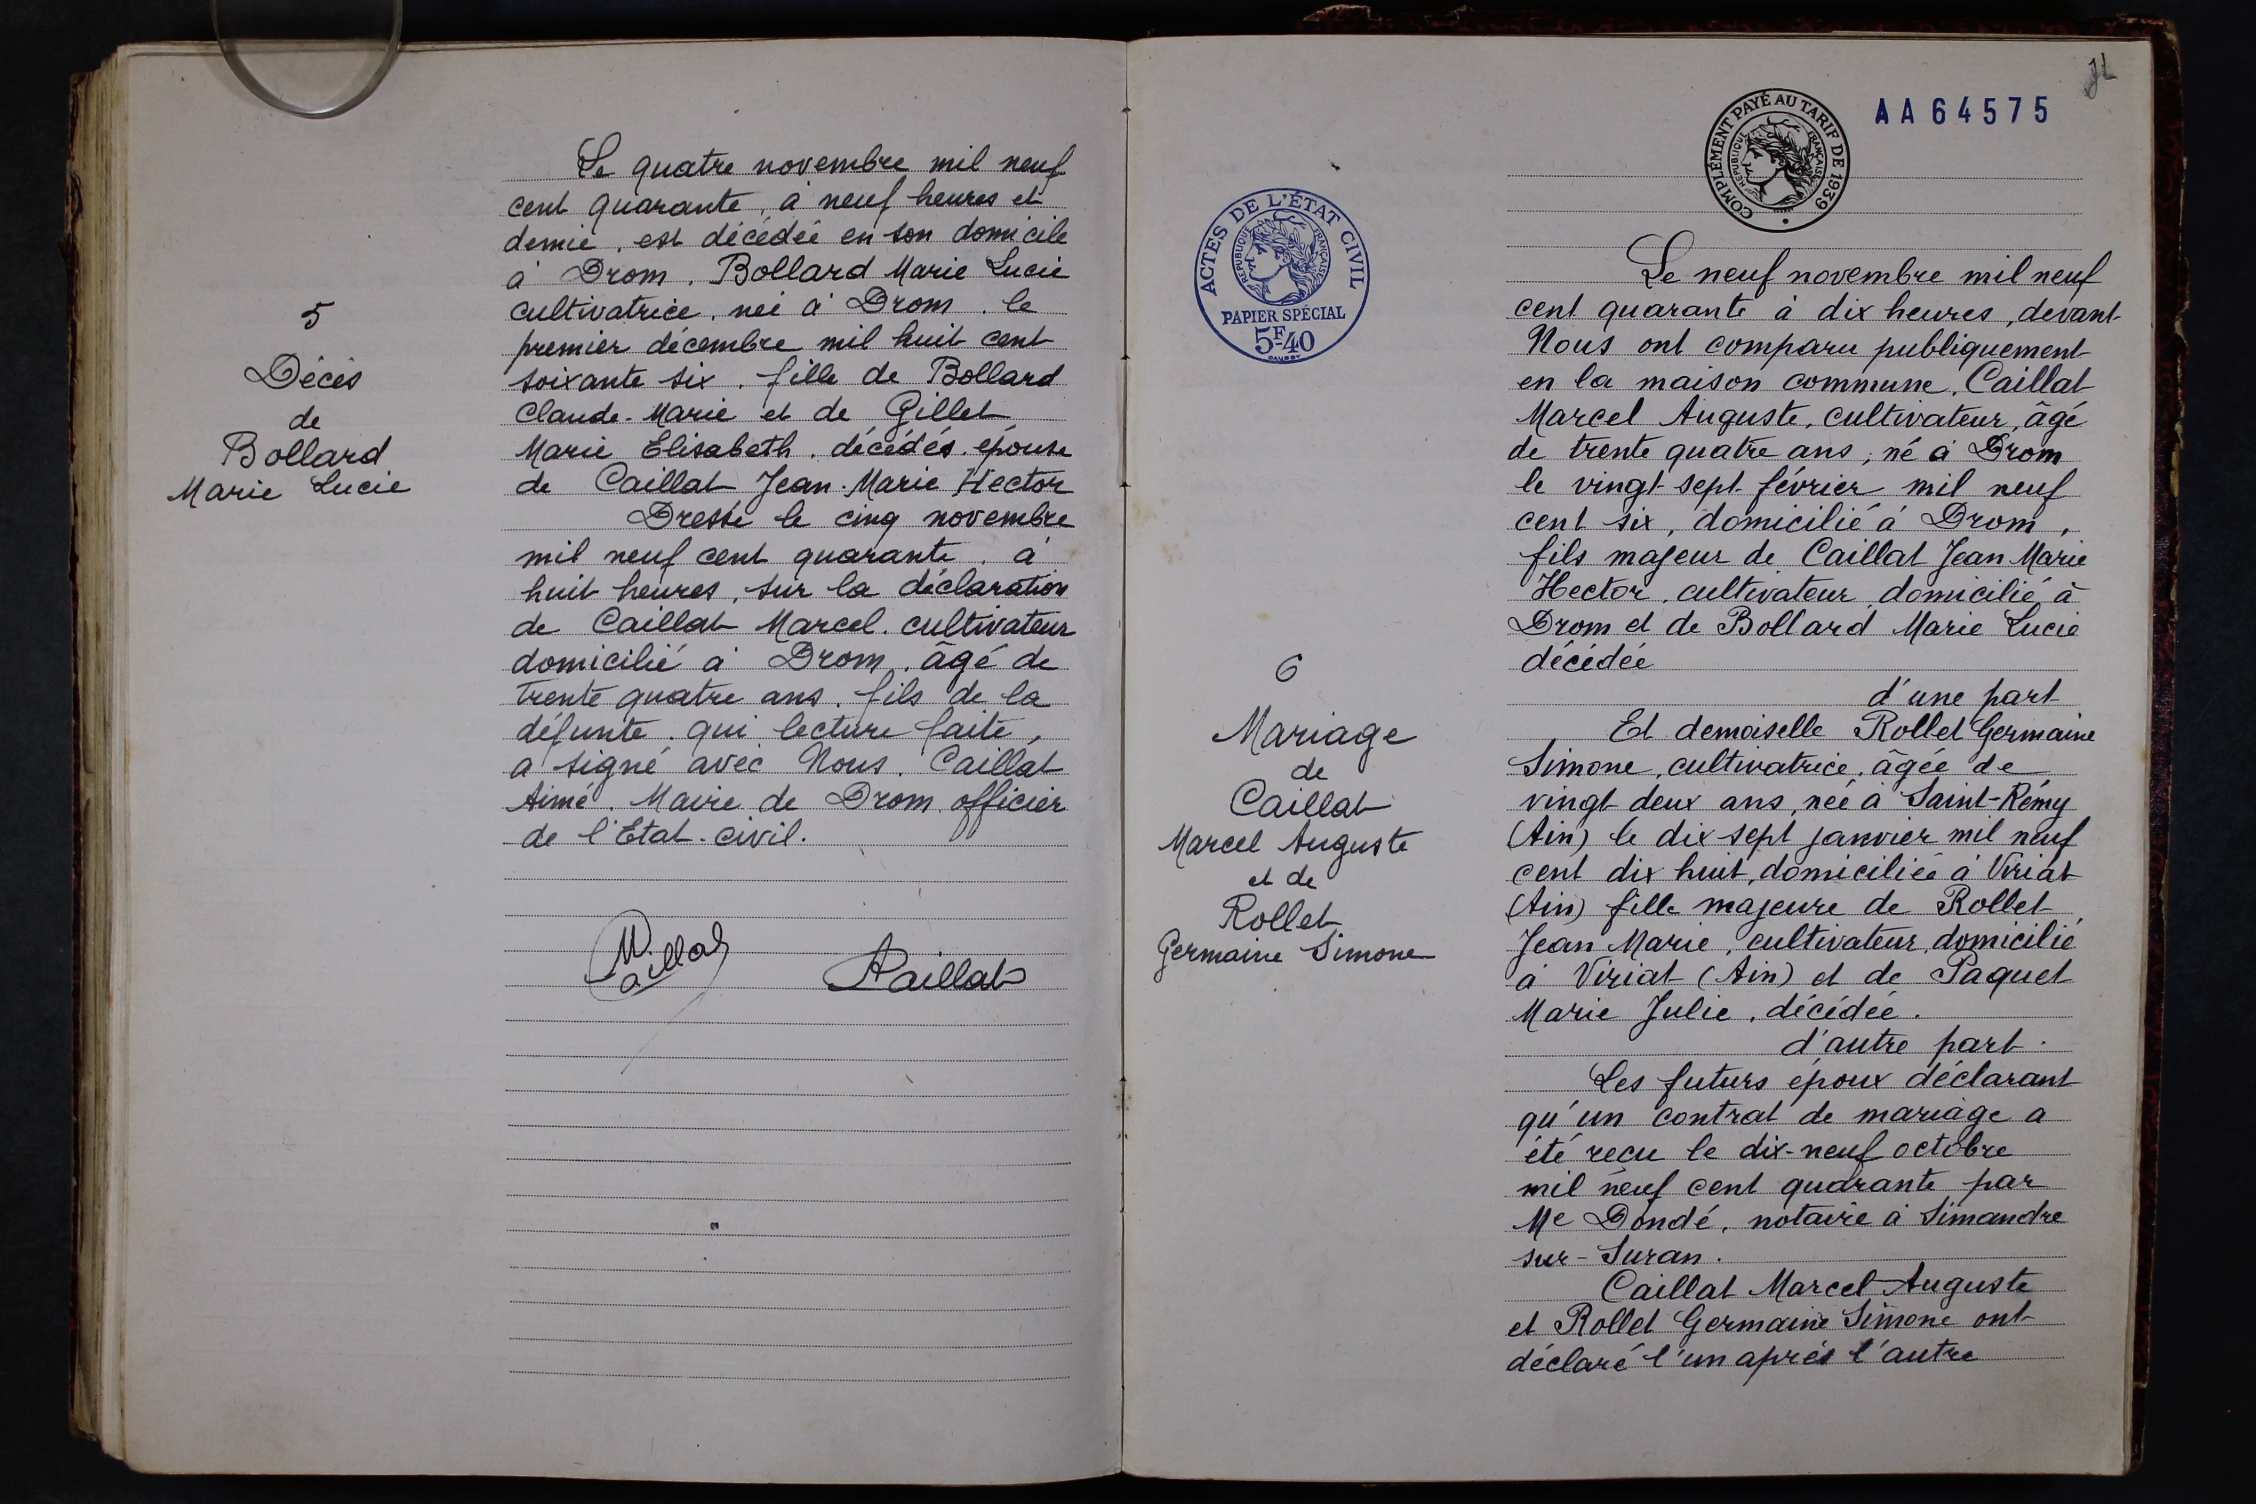 5
Décès
de
Bollard
Marie Lucie
Le quatre novembre mil neuf
cent quarante, à neuf heures et
demie, est décédée en son domicile
à Drom. Bollard Marie Lucie
cultivatrice, neé à Drom. le
premier décembre mil huit cent
soixante six. fille de Bollard
Claude-Marie et de Gillet
Marie Elisabeth. décédés. épouse
de Caillat Jean-Marie Hector
Dressé le cinq novembre
mil neuf cent quarante. à
huit heures, sur la déclaration
de Caillat Marcel. cultivateur
domicilié à Drom. âgé de
trente quatre ans. fils de la
défunte. qui lecture faite,
a signé avec Nous. Caillat
Aimé. Maire de Drom officier
de l'Etat-civil.
MCaillat
ACaillat
AA64575
COMPLÉMENT PAYÉ AU TARIF DE 1939
RÉPUBLIQUE FRANÇAISE
ACTES DE L'ÉTAT CIVIL
RÉPUBLIQUE FRANÇAISE
PAPIER SPÉCIAL
5F-40
6
Mariage
de
Caillat
Marcel Auguste
et de
Rollet
Germaine Simone
Le neuf novembre mil neuf
cent quarante à dix heures, devant
Nous ont comparu publiquement
en la maison commune. Caillat
Marcel Auguste, cultivateur, âgé
de trente quatre ans, né à Drom
le vingt sept février mil neuf
cent six, domicilié à Drom,
fils majeur de Caillat Jean Marie
Hector, cultivateur domicilié à
Drom et de Bollard Marie Lucie
décédée
d'une part
Et demoiselle Rollet Germaine
Simone, cultivatrice, âgée de
vingt deux ans, neé à Saint-Rémy
(Ain) le dix sept janvier mil neuf
cent dix huit, domiciliée à Viriat
(Ain) fille majeure de Rollet
Jean Marie, cultivateur, domicilié
à Viriat (Ain) et de Paquet
Marie Julie, décédée.
d'autre part.
Les futurs époux déclarant
qu'un contrat de mariage a
été reçu le dix-neuf octobre
mil neuf cent quarante par
Me Dondé, notaire à Simandre
sur-Suran.
Caillat Marcel Auguste
et Rollet Germaine Simone ont
déclaré l'un après l'autre